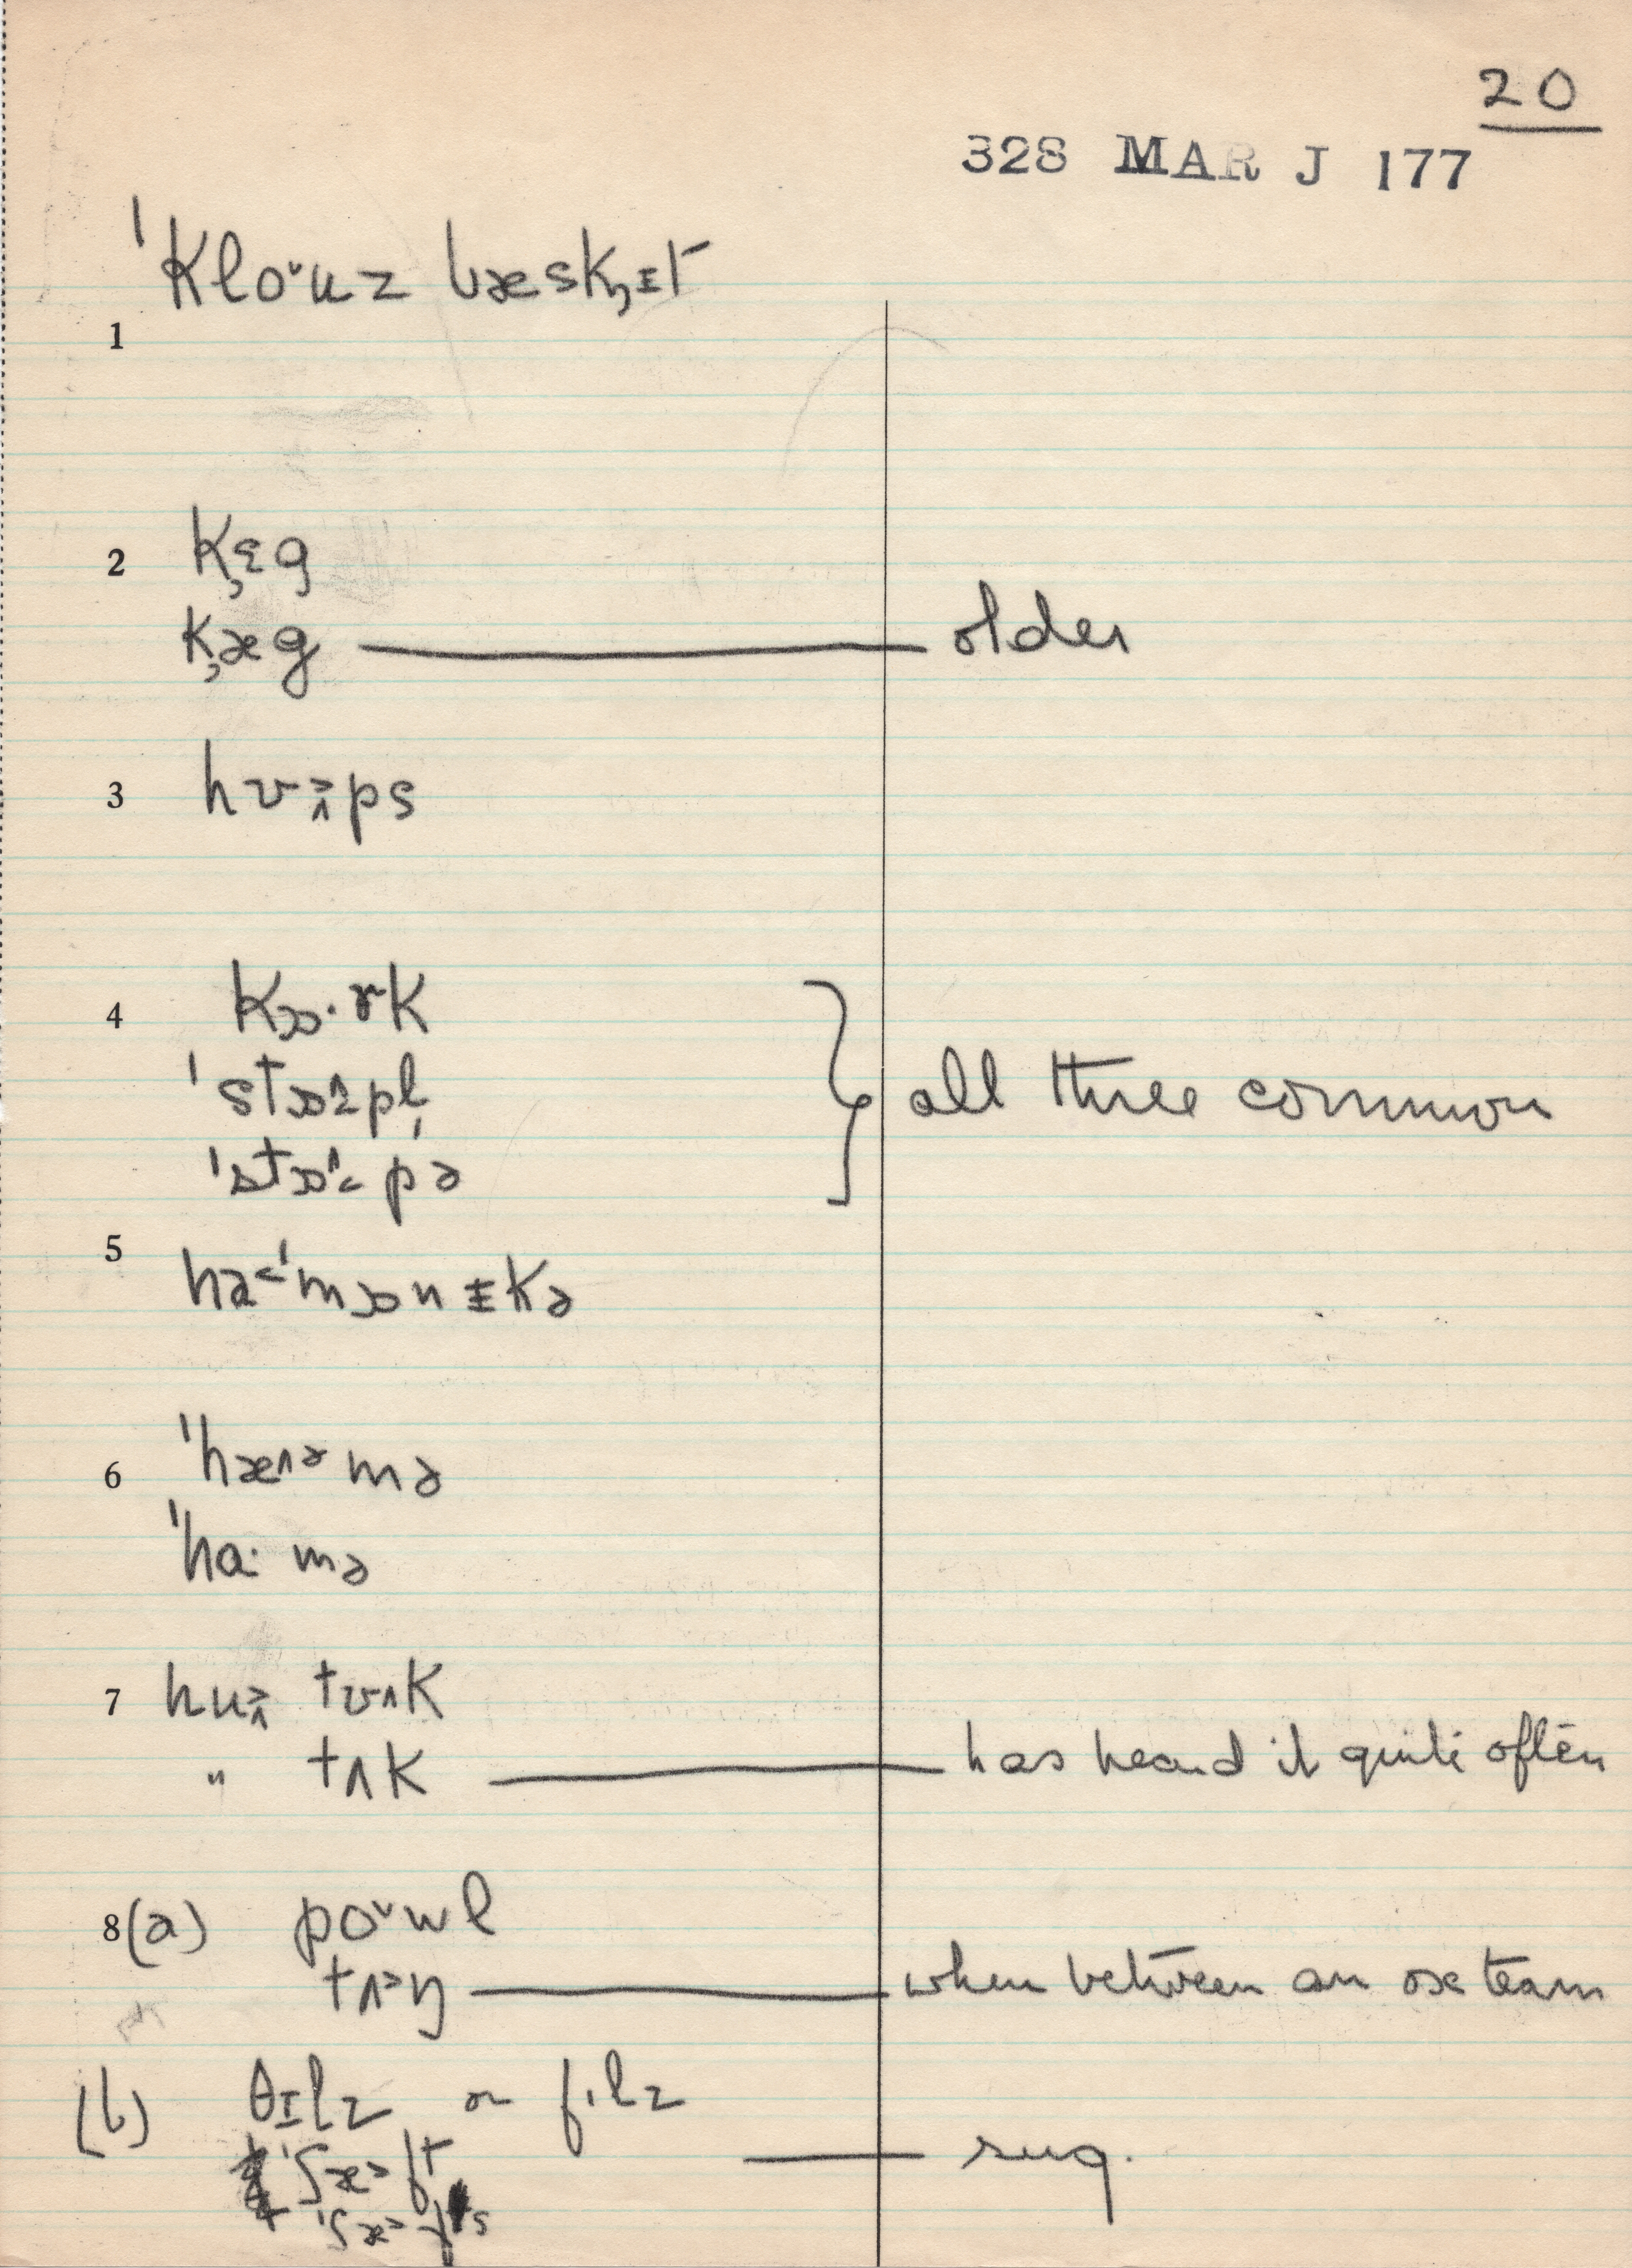 20
328 MAR J 177
ˈkloˇuz bæsk̡ɪt
1
2 k̡ɛg
k̡æg — older
3 hʊ>ʌps
4 kɒ·rk
ˈstɒ^pl̩
ˈstɒ^pə } all three common
5 ha<ˈmɒnɪkə
6 ˈhæ^ɚmə
ˈhɑ·mə
7 hu> tʊ^k
" tʌk — has heard it quite often
8 (a) poˇwl
tʌ>ŋ — when between an ox team
(b) θɪlz or fɪlz
ˈʃæ>ft — sug.